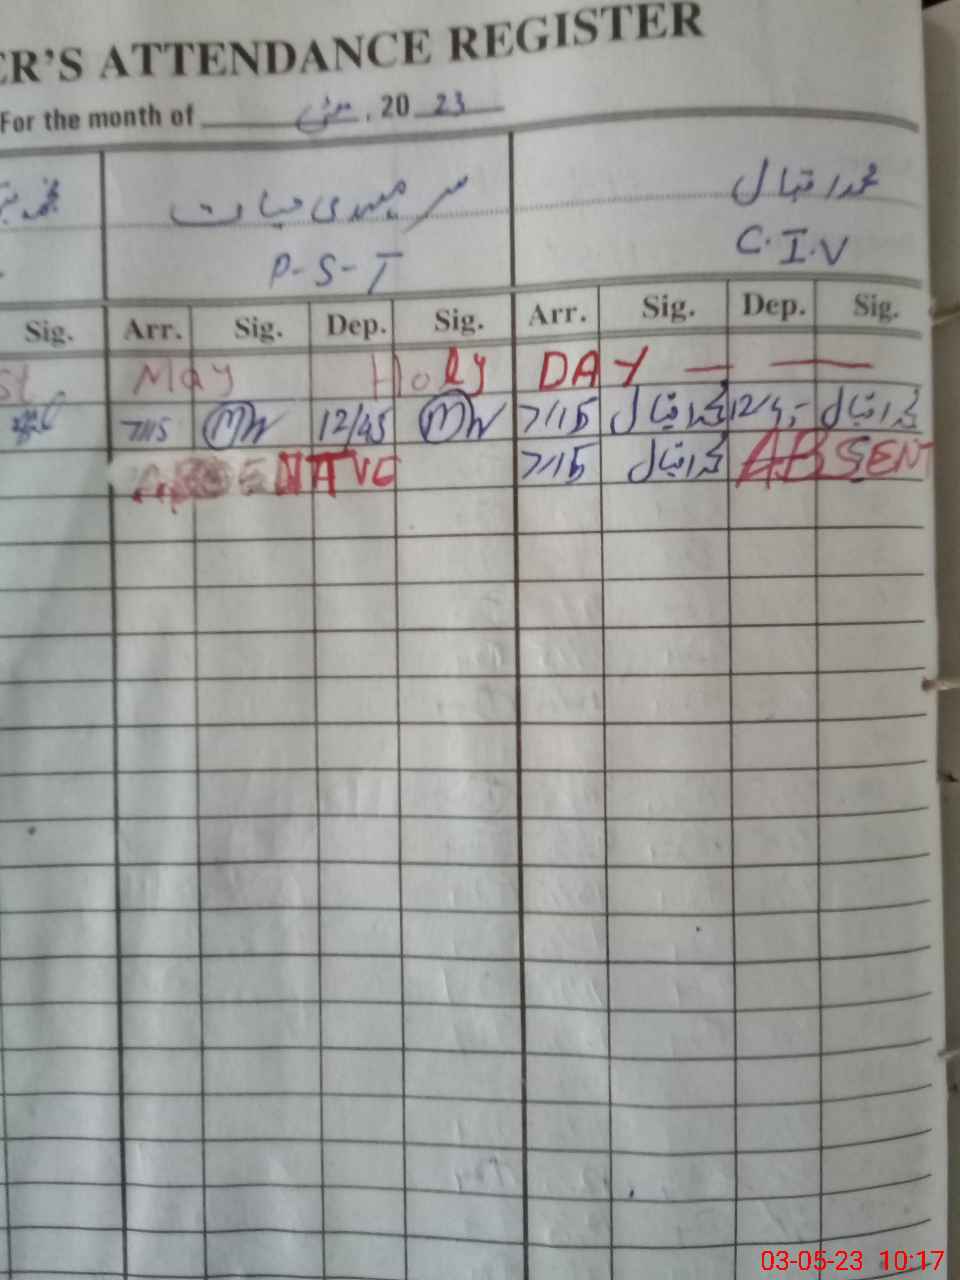 ER'S ATTENDANCE REGISTER
For the month of مئی, 20 23
محمد سرمہدی حیات محمد اقبال
P-S-T C.I.V
Sig. Arr. Sig. Dep. Sig. Arr. Sig. Dep. Sig.
st May Holy DAY
7/15 MW 12/45 MW 7/15 محمد اقبال 12/45 محمد اقبال
7/15 محمد اقبال ABSENT
03-05-23 10:17